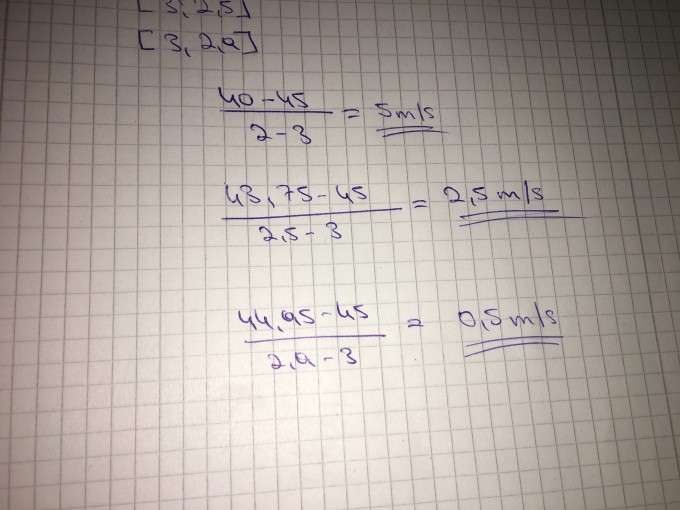 [3, 2,5]
[3, 2,9]
40-45
2-3
= 5m/s
43,75-45
2,5-3
= 2,5 m/s
44,95-45
2,9-3
= 0,5 m/s